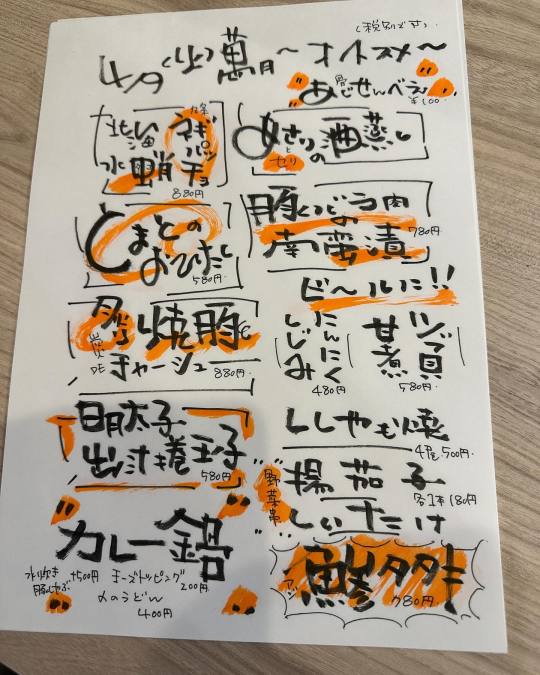 (税別です)
4/9(火)萬月〜オススメ〜
あじせんべえ
¥100
北海
水蛸
ネギ
ポッ
チョ
880円
あさりの酒蒸し
とセリ
とまとの
おひたし
580円
豚くつどのう肉
南蛮漬
780円
焼豚
炭火DE
チャーシュー
880円
ビールに!!
にんにく
しじみ
480円
ツブ貝
甘煮
580円
明太子
出汁巻玉子
580円
ししゃも焼
4尾500円
野菜串
揚茄子
各1本180円
しいたけ
カレー鍋
水炊き
豚しゃぶ
+500円
チーズトッピング
200円
〆のうどん
400円
鯵タタキ
アジ
780円